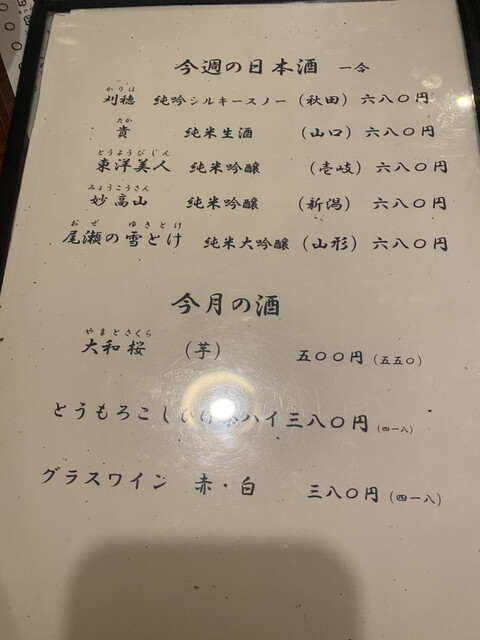 今週の日本酒 一合
かりほ
刈穂 純吟シルキースノー（秋田）六八〇円
たか
貴 純米生酒 （山口）六八〇円
とうようびじん
東洋美人 純米吟醸 （壱岐）六八〇円
みょうこうさん
妙高山 純米吟醸 （新潟）六八〇円
おぜ ゆきとけ
尾瀬の雪とけ 純米大吟醸（山形）六八〇円
今月の酒
やまとさくら
大和桜 （芋） 五〇〇円（五五〇）
とうもろこし ハイ三八〇円（四一八）
グラスワイン 赤・白 三八〇円（四一八）